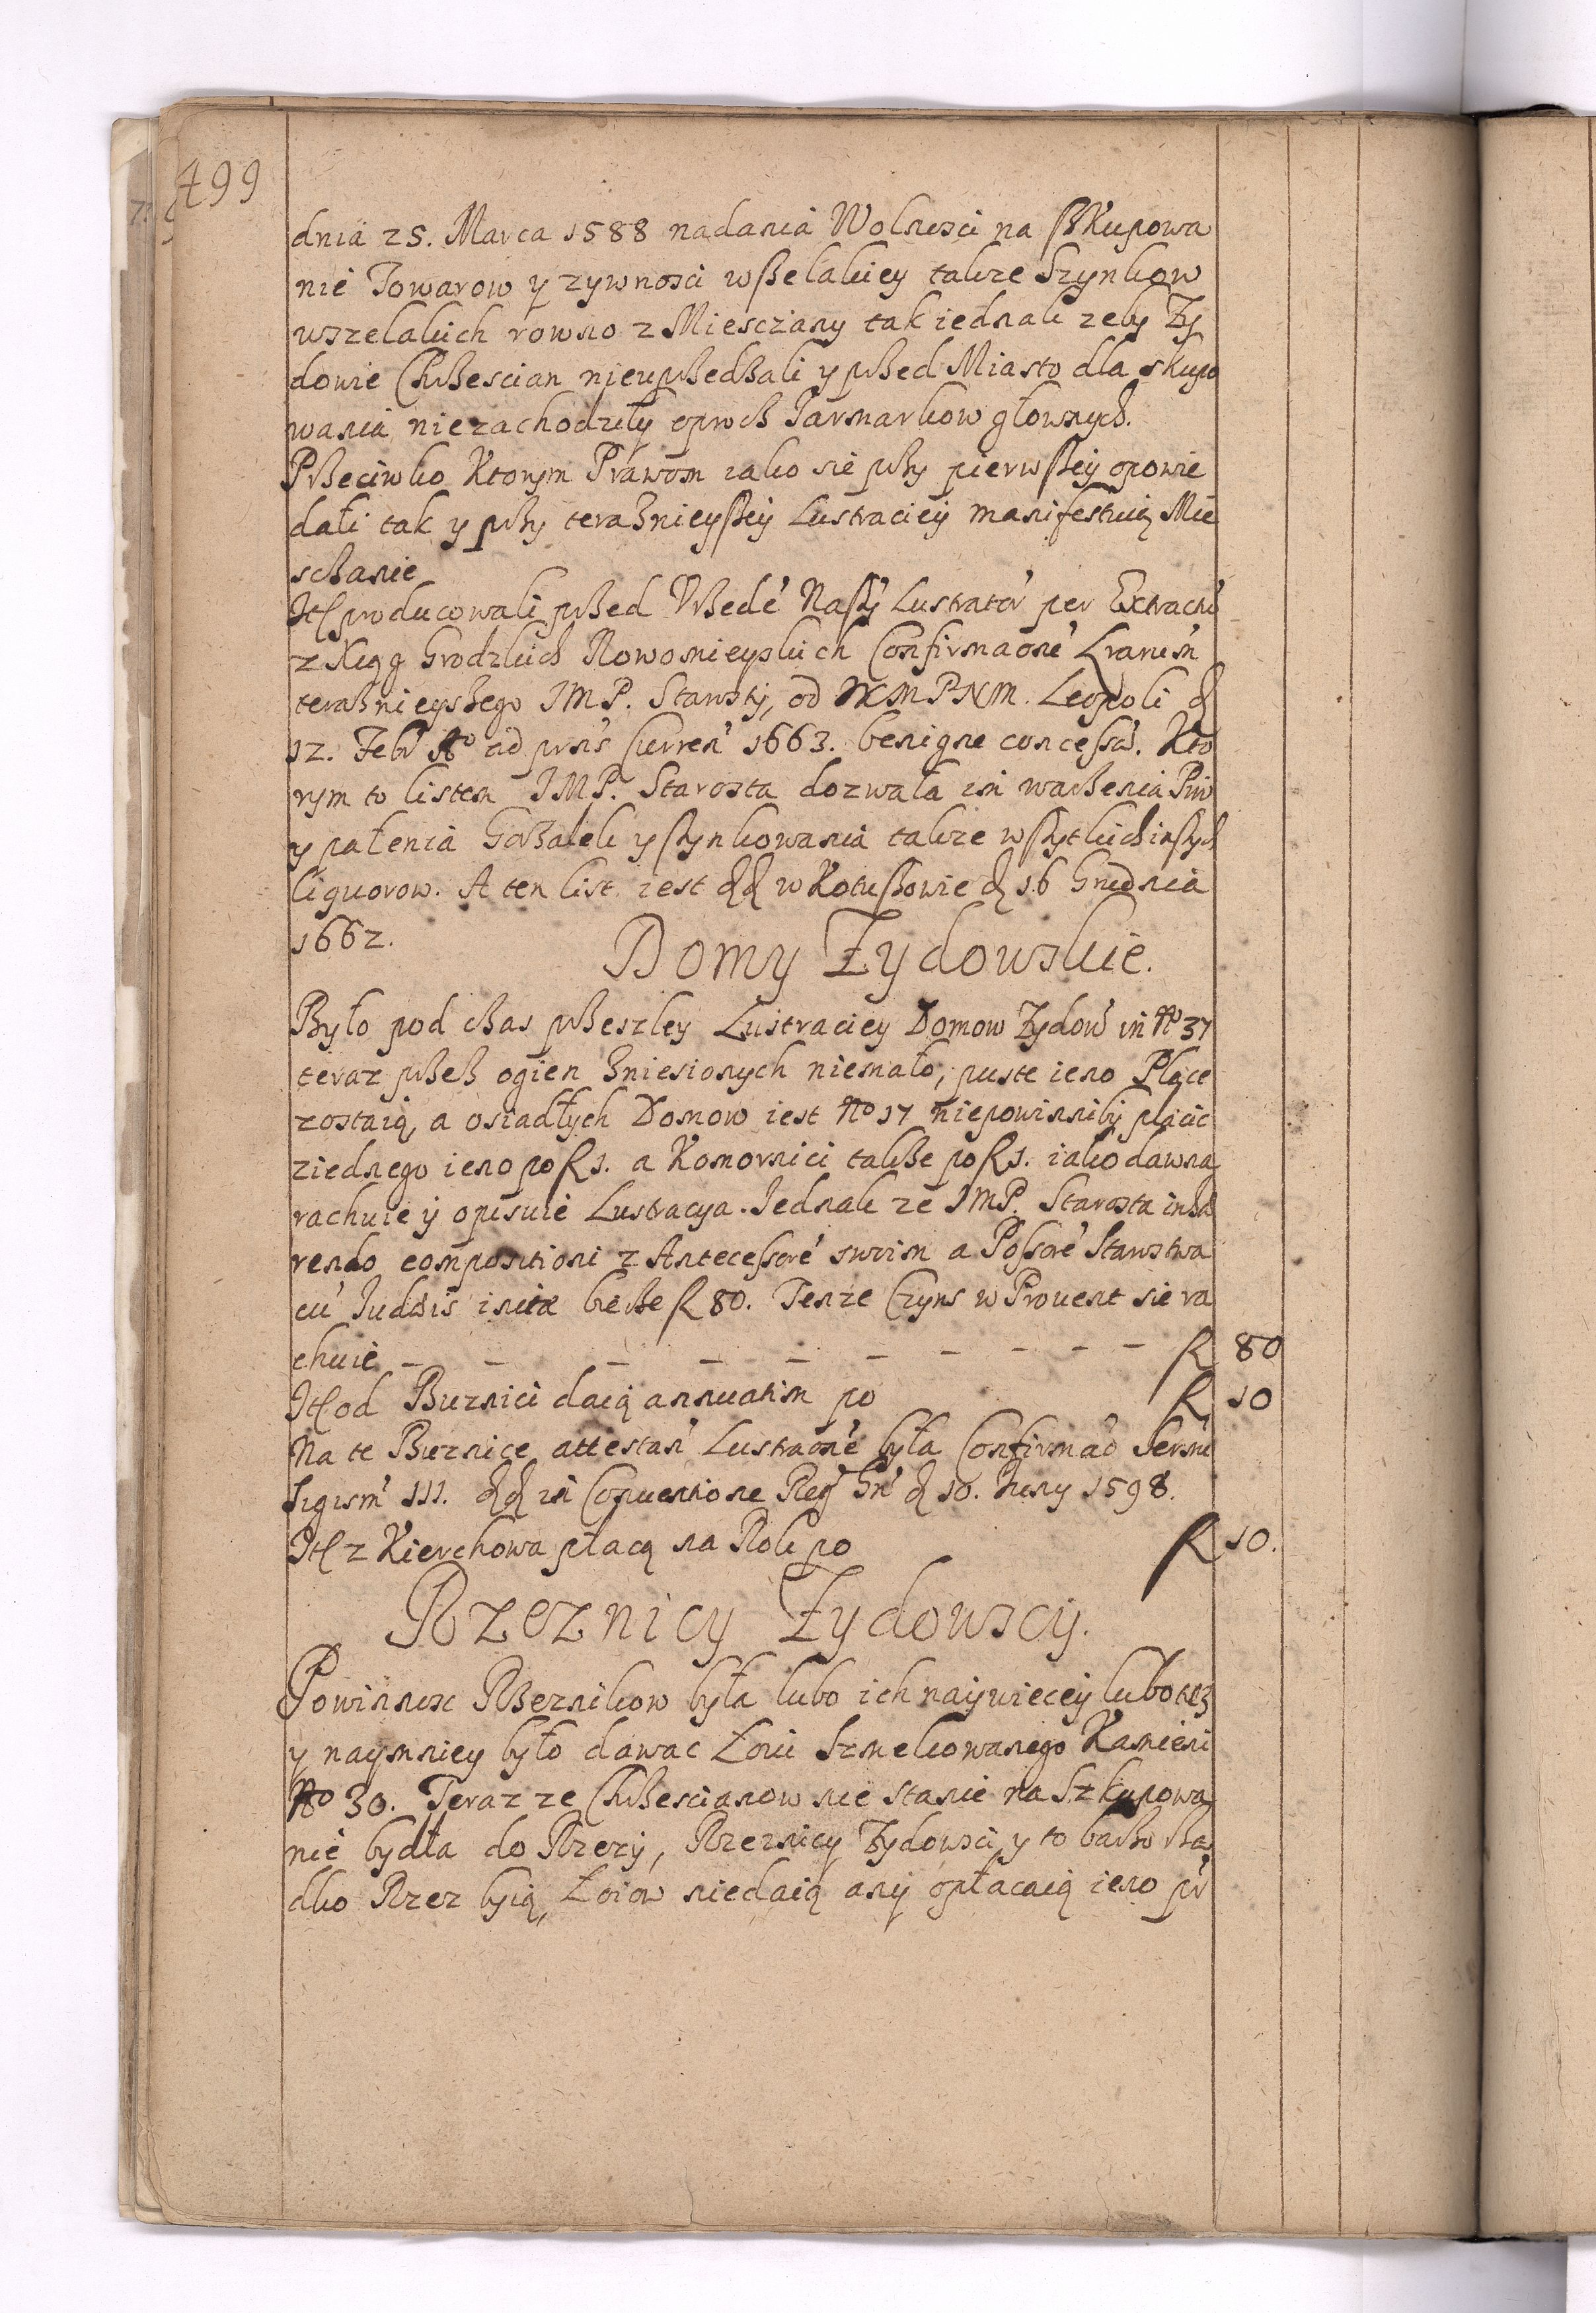 499
dnia 25. Marca 1588 nadania Wolnosci na skupowa
nie Towarow y zywnosci wszelakiey takze Szynkow
wszelakich rowno z Miesczany tak iednak zeby Zy
dowie Chrzescian nieuprzedzali y przed Miasto dla skupo
wania niezachodzily oproch Jarmarkow głownych.
Przeciwko Ktorym Prawom iako sie przy pierwszey opowie
dali tak y przy teraznieyszey Lustraciey manifestuią Mie
sczanie
Itt producowali przed Vrzedē Naszȳ Lustratōr per Extractū
z Xiąg Grodzkich Nowomieyskich Confirmaonē Lrarum
teraznieyszego JMP. Starosty, od JKMPNM. Leopoli d
12. Febr Ao ad prns curren 1663. benigne concessā. Kto
rym to listem JMP. Starosta dozwala im warzenia Piw
y palenia Gorzalek y szynkowania takze wszytkich inszych
liquorow. A ten list iest dd w Kotuszowie d 16 Grudnia
1662.
Domy Zydowskie.
Było pod czas przeszley Lustraciey Domow Zydow in No 37
teraz przez ogien zniesionych niemało, puste ieno Place
zostaią, a osiadłych Domow iest No 17 niepowinniby płacic
ziednego ieno po fl 1. a Komornici takze po fl 1. iako dawna
rachuie y opisuie Lustracya. Jednak ze JMP. Starosta inhæ
rendo compositioni z Antecessorē swoim a Possorē Starostwa
cū Judæis initæ bierze fl 80. Tenze Czyns w Prouent sie ra
chuie — — — — — — — — — fl 80
Itt od Buznici daią annuatim po fl 10
Na te Buznice attestan Lustraonē była Confirmaō Sermi
Sigism III. dd in Conuentione Reg Gn d 10. Juny 1598.
Itt z Kierchowa płacą na Rok po fl 10.
Rzeznicy Zydowscy.
Powinnosc Rzeznikow była lubo ich naywiecey lubo tez
y naymniey było dawac Łoiu Szmelcowanego Kamieni
No 30. Teraz ze Chrzescianow nie stanie na Szkupowa
nie bydła do Rzezy, Rzeznicy Zydowsci y to barzo rza
dko Rzez byią, Łoiow niedaią any opłacaią ieno pr